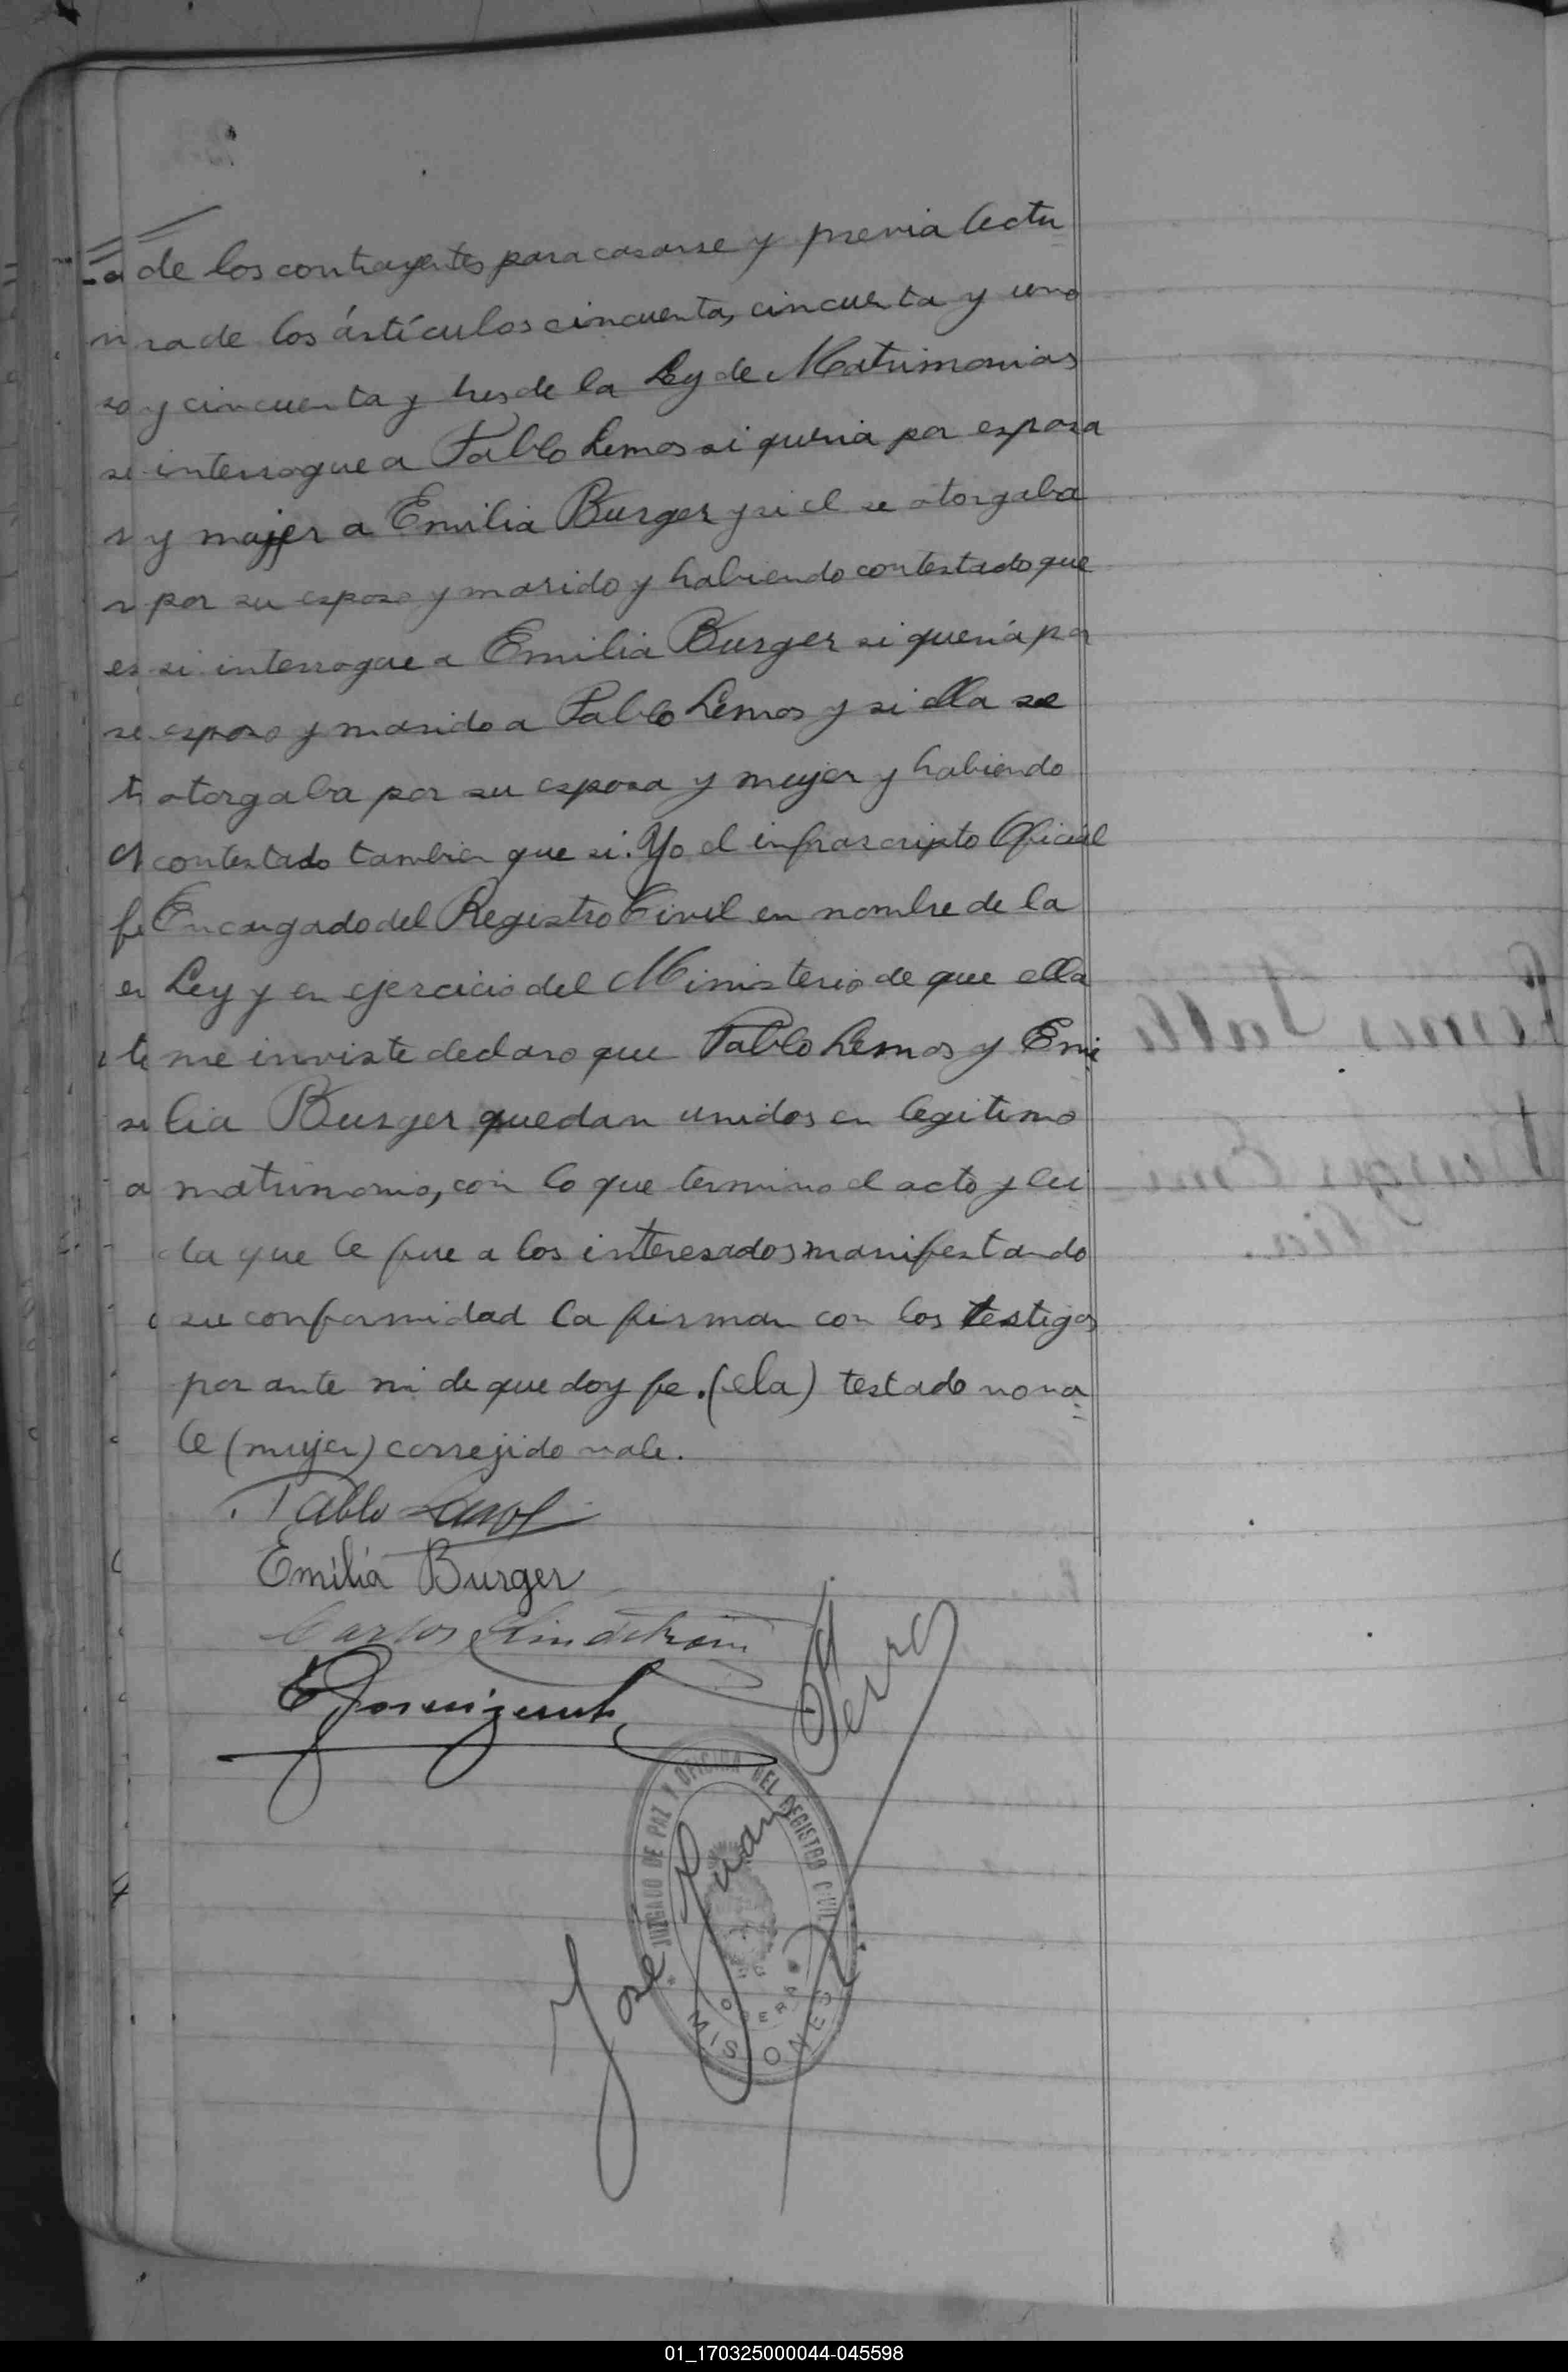 de los contrayentes para casarse y previa lectu
ra de los ártículos cincuenta, cincuenta y uno
y cincuenta y tres de la Ley de Matrimonios
se interrogue a Pablo Lemos si queria por esposa
y mujer a Emilia Burger y si el se otorgaba
por su esposo y marido y habiendo contestado que
si interrogue a Emilia Burger si quería por
esposo y marido a Pablo Lemos y si ella se
otorgaba por su esposa y mujer y habiendo
contestado tambien que si. Yo el infrascripto Oficial
Encargado del Registro Civil en nombre de la
Ley y en ejercicio del Ministerio de que ella
me inviste declaro que Pablo Lemos y Emi
lia Burger quedan unidos en legitimo
matrimonio, con lo que termino el acto y lei
da que le fue a los interesados manifestando
su conformidad la firman con los testigos
por ante mi de que doy fe. (ela) testado no va
le (mujer) correjido vale.
Pablo Lemos
Emilia Burger
Carlos Lindstrom
José Juan Perra
JUZGADO DE PAZ Y OFICINA DEL REGISTRO CIVIL
OBERA
MISIONES
Lemos Pablo
Burger Emi
lia.
01_170325000044-045598